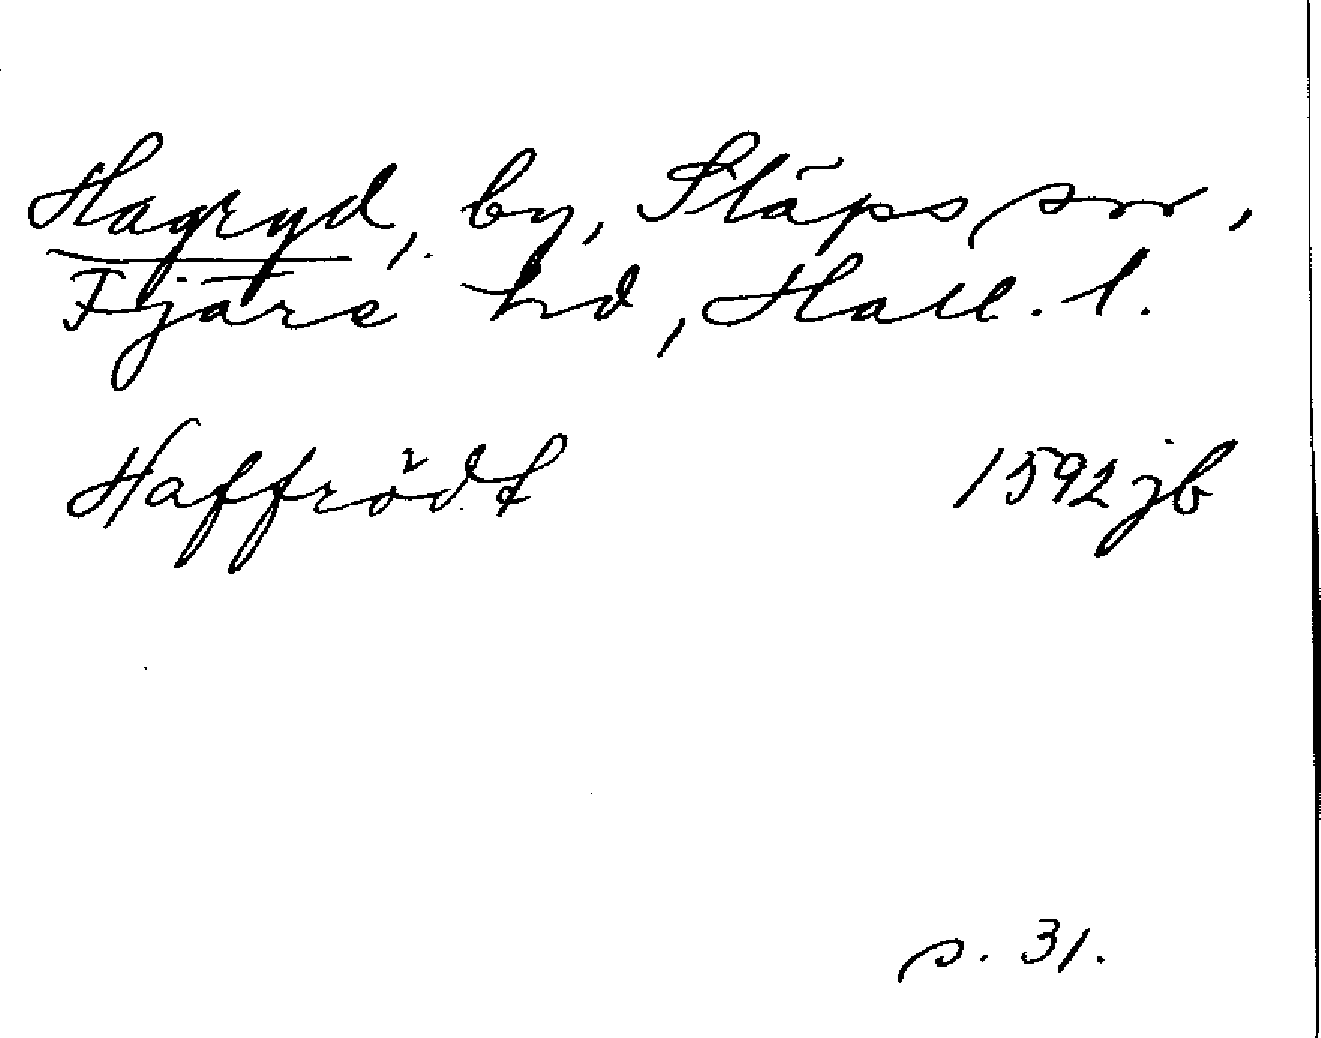 Hagryd, by, Släps sn,
Fjäre hd, Hall. l.
Haffrödt 1592 jb
s. 31.